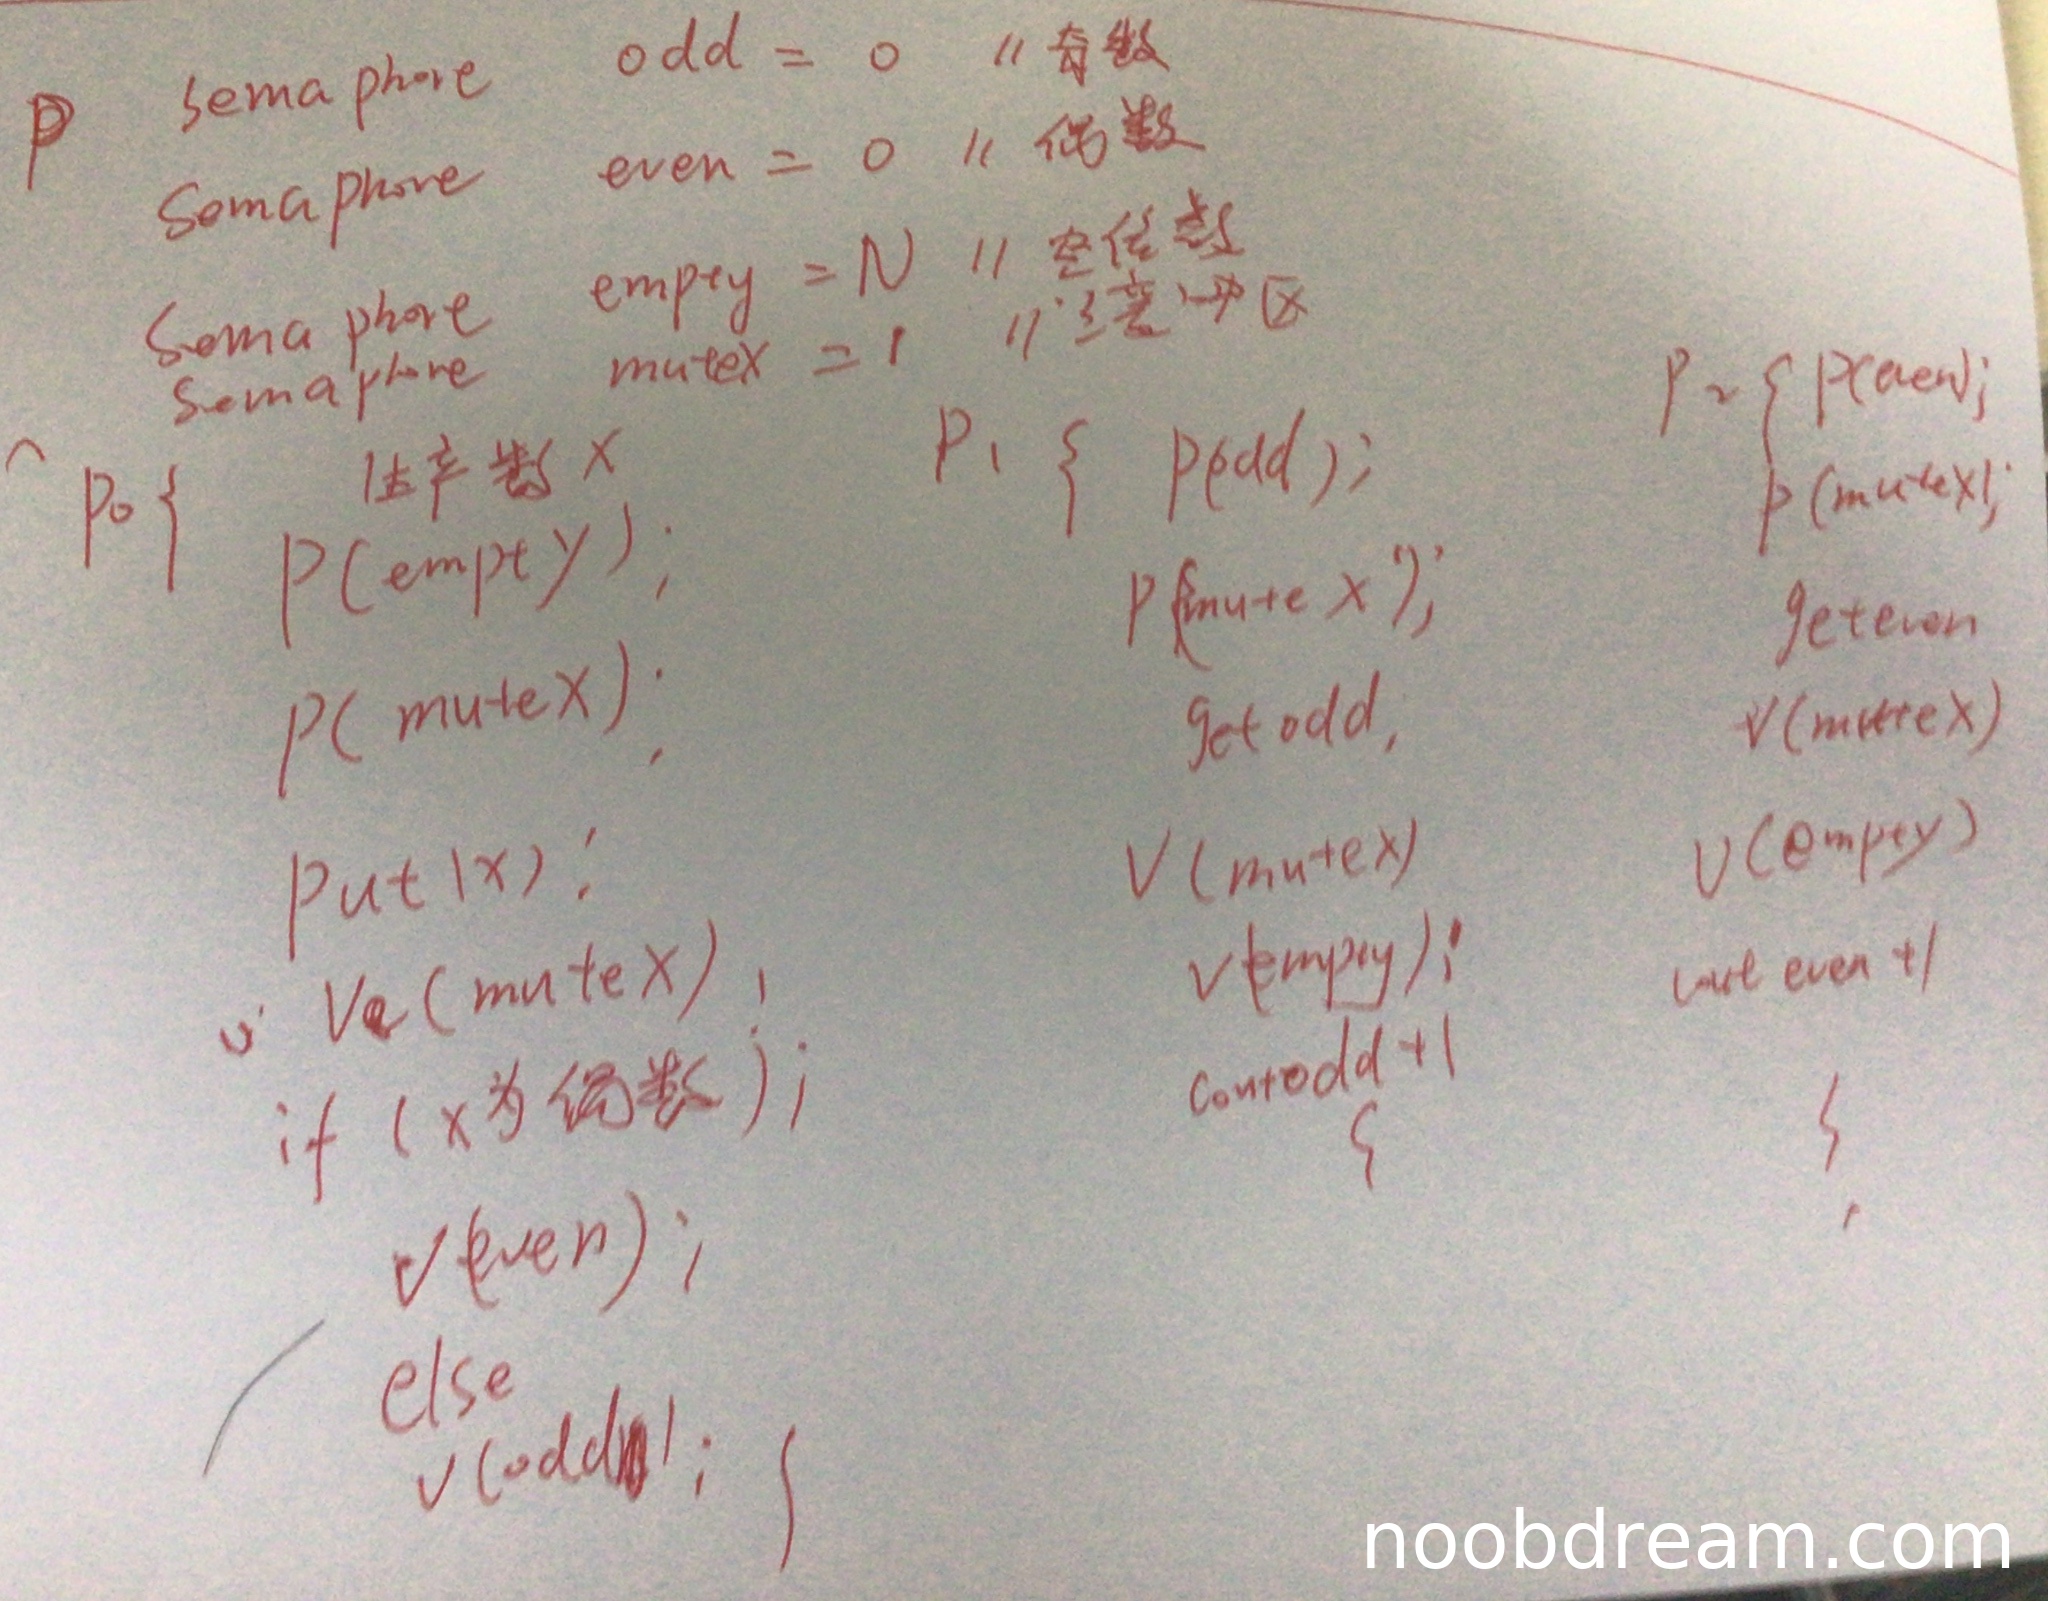 P semaphore odd = 0 // 奇数
Semaphore even = 0 // 偶数
Semaphore empty = N // 空位数
Semaphore mutex = 1 // 区
P0 {
生产数 X
P(empty);
P(mutex);
Put(x);
V(mutex);
if (x为偶数);
V(even);
else
V(odd);
}
P1 { P(odd);
P(mutex);
getodd;
V(mutex)
V(empty);
contodd+1
}
P2 { P(even);
P(mutex);
geteven
V(mutex)
V(empty)
even +1
}
noobdream.com